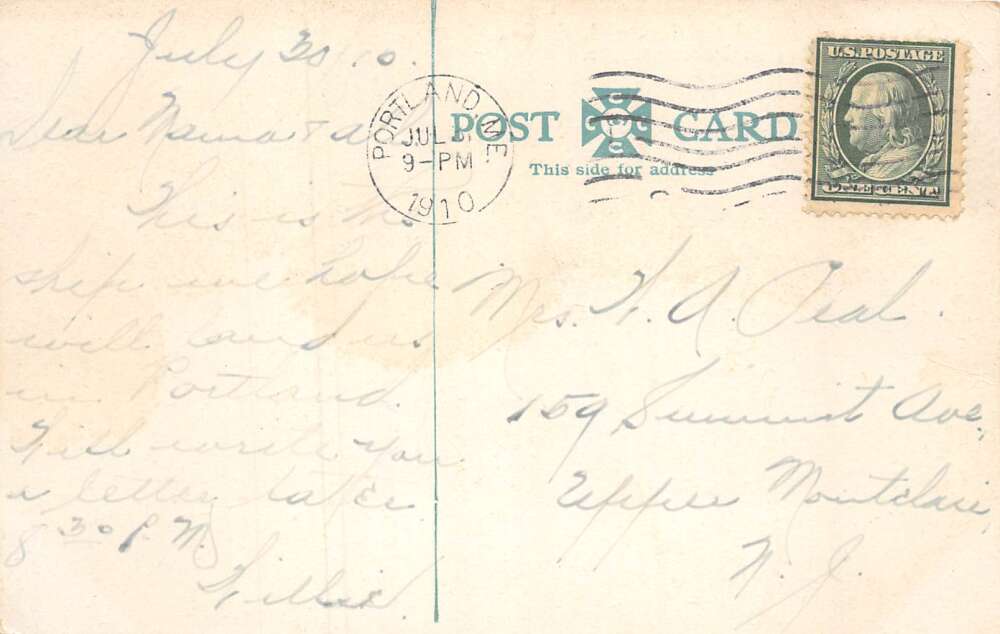 July 30 10.
Dear Mama + a
This is the
ship we hope
will land us
in Portland.
Will write you
a letter later
8 30 P.M.
Willie
PORTLAND, ME
JUL 31
9-PM
1910
POST CARD
This side for address
U.S. POSTAGE
ONE CENT
Mrs. W. A. Peal.
159 Summit Ave,
Upper Montclair,
N. J.